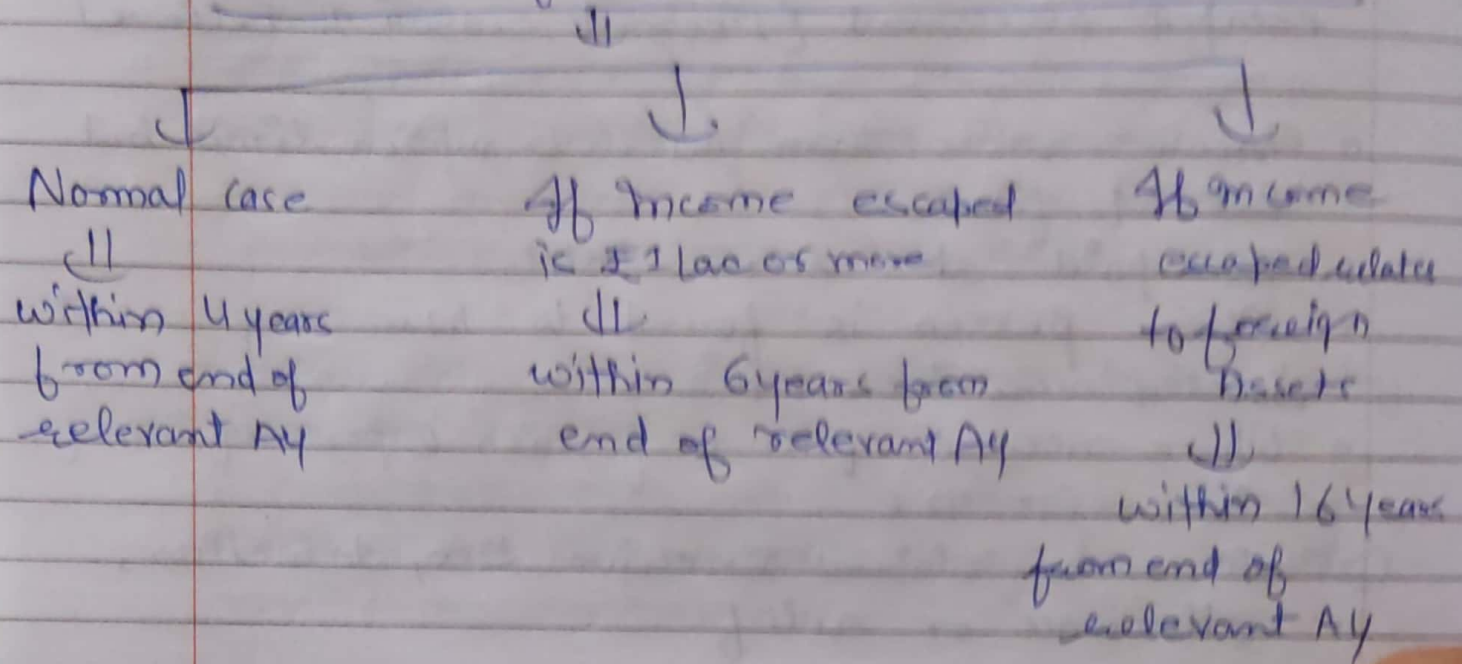 Normal case
within 4 years
from end of
relevant AY
If Income escaped
is ₹ 1 lac or more
within 6 years from
end of relevant AY
If Income
escaped relates
to foreign
Assets
within 16 years
from end of
relevant AY